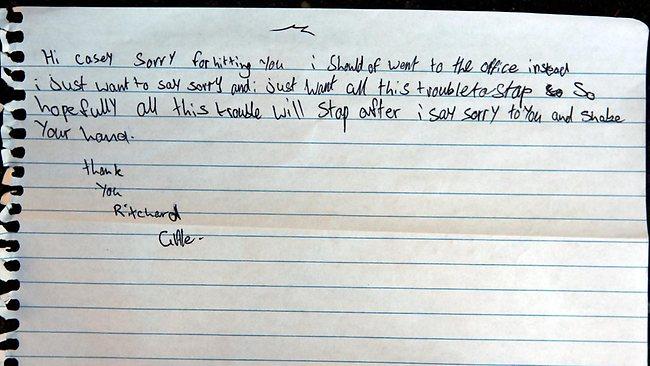 Hi casey sorry for hitting you i should of went to the office instead
i just want to say sorry and i just want all this trouble to stop so
hopefully all this trouble will stop after i say sorry to you and shake
your hand.
thank
you
Ritchard